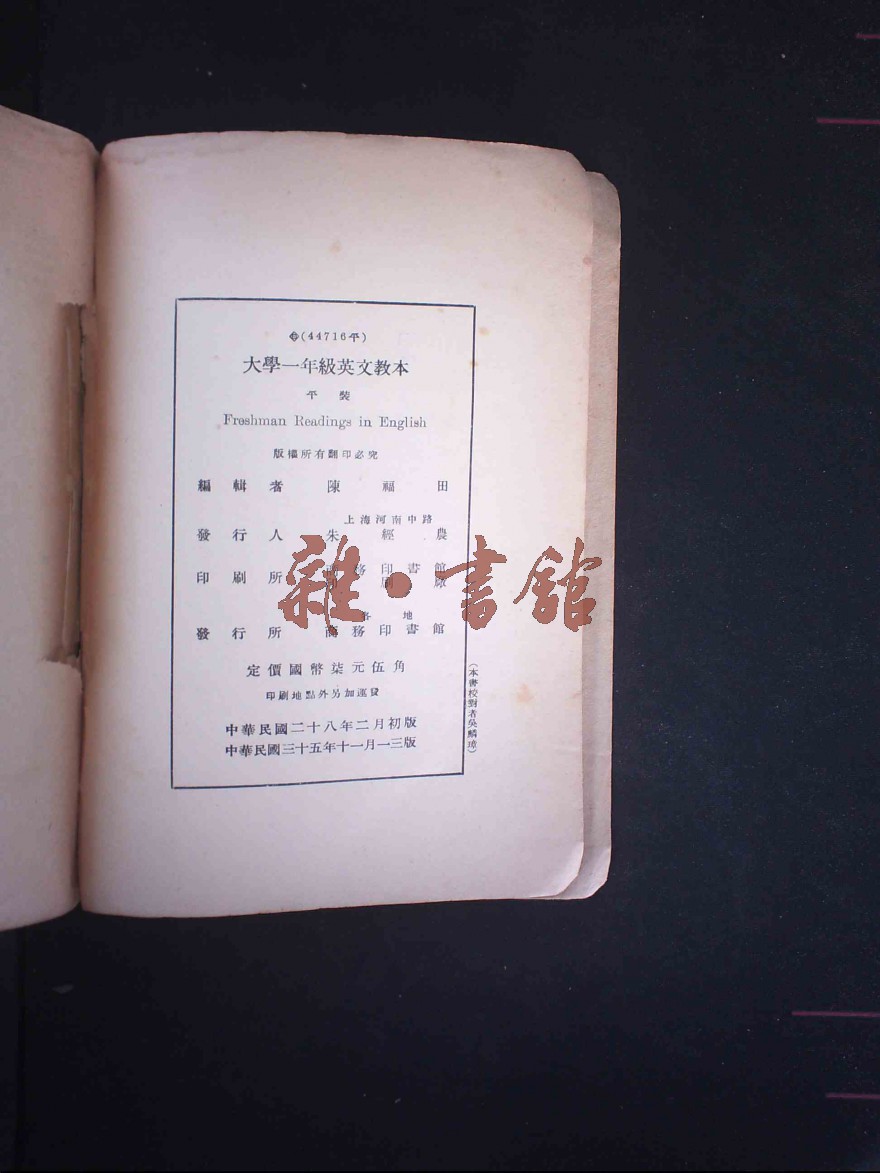 (44716平)
大學一年級英文教本
平裝
Freshman Readings in English
版權所有翻印必究
編輯者 陳福田
上海河南中路
發行人 朱經農
印刷所 商務印書館
印刷廠
各地
發行所 商務印書館
定價國幣柒元伍角
印刷地點外另加運費
中華民國二十八年二月初版
中華民國三十五年十一月一三版
(本書校對者吳麟璋)
雜·書館